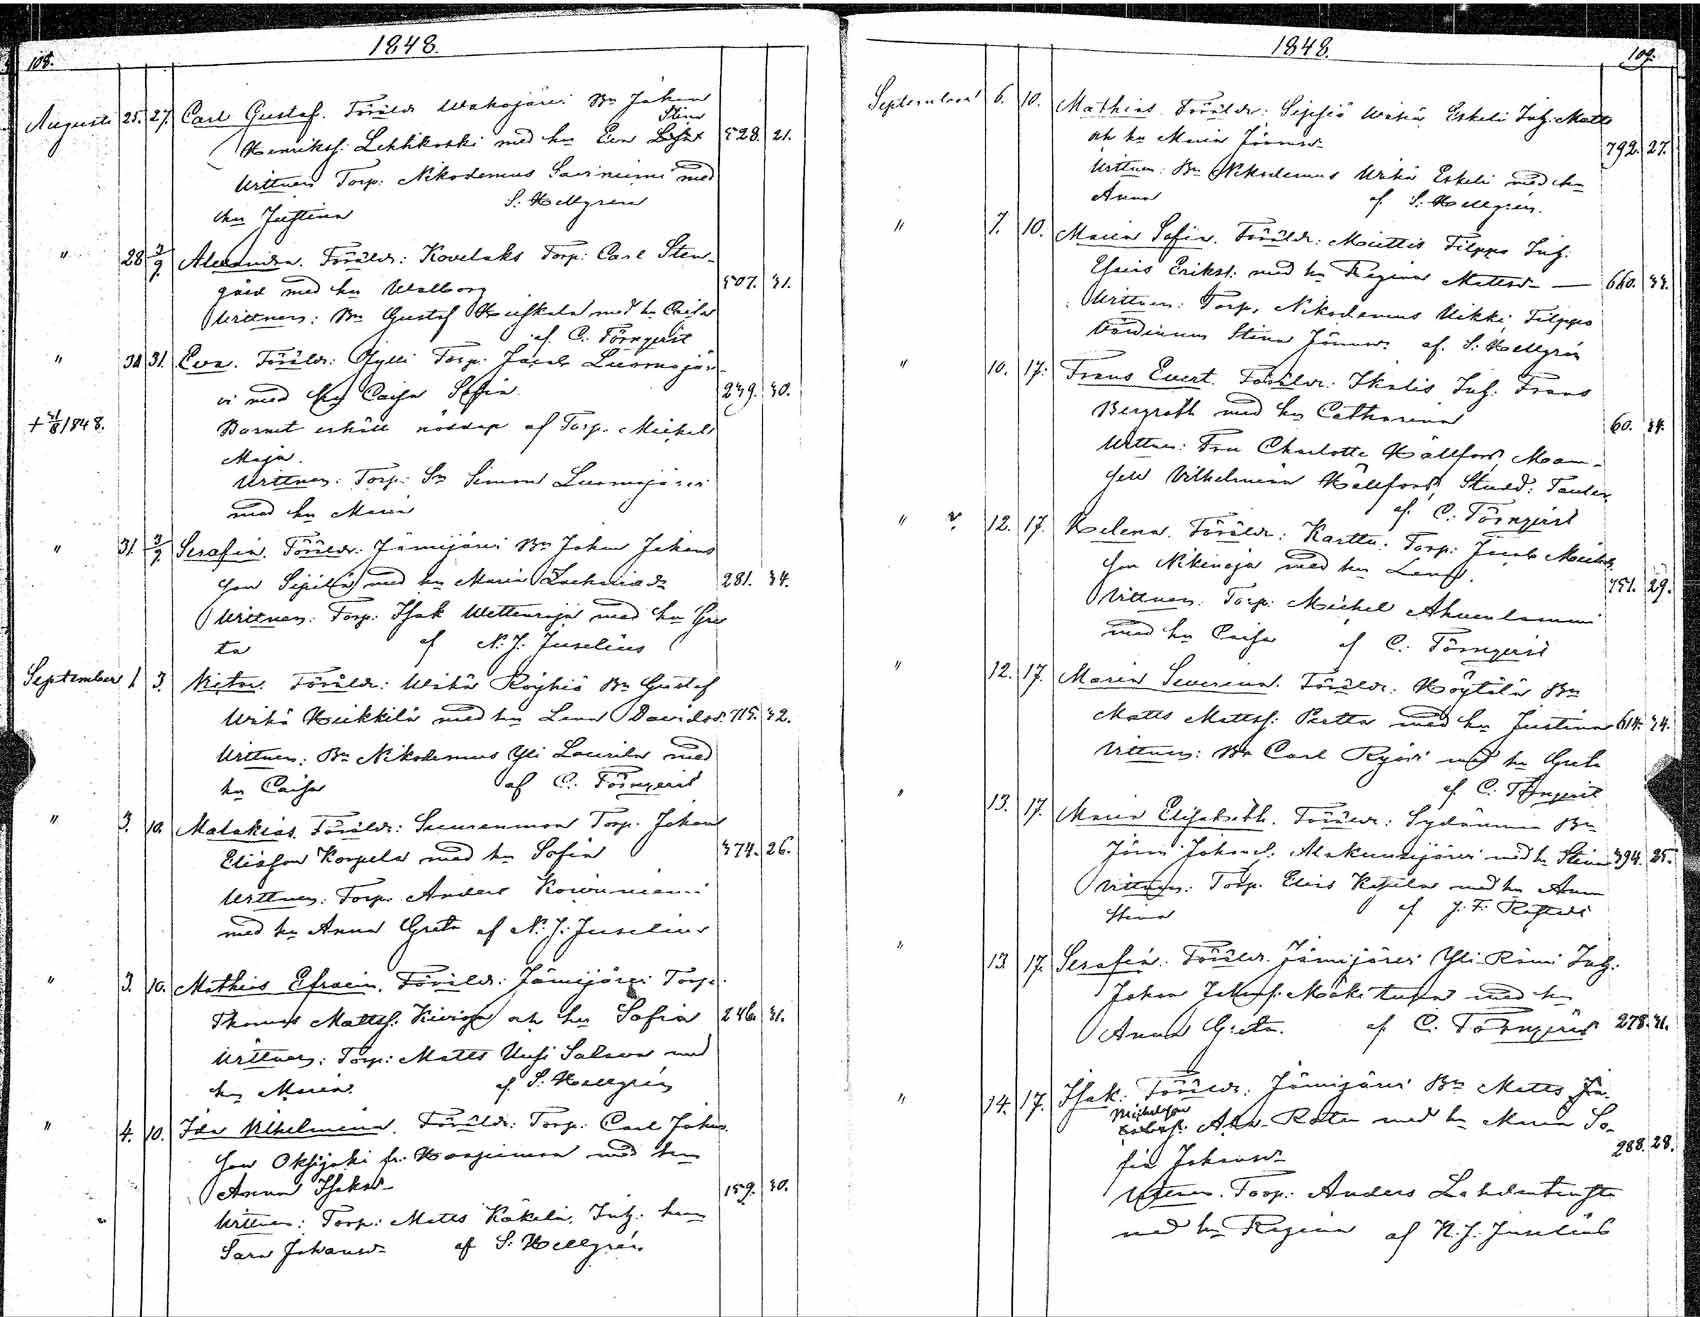 108.
1848.
Augusti 25. 27. Carl Gustaf. Föräldr: Wahojärvi Bn Johan
Stina
Henrikss: Lehtikoski med hu Eva 528. 21.
Wittnen Torp: Nikodemus Saarniemi med
hu Justina S. Hellgren
" 28 3/9 Alexandra. Föräldr: Kovelaks Torp: Carl Sten-
gård med hu Walborg 507. 31.
Wittnen: Bn Gustaf Heiskala med hu Caisa
af C. Törnqvist
" 30 31. Eva. Föräldr: Jylli Torp: Jacob Luomajär-
vi med hu Caisa Sofia 239. 30.
+ 31/8 1848. Barnet erhöll nöddop af Torp. Michels
Maja.
Wittnen: Torp: Sn Simon Luomajärvi
med hu Maria
" 31. 3/9 Serafia. Föräldr: Jämijärvi Bn Johan Johans
son Sipilä med hu Maria Zachariad. 281. 34.
Wittnen: Torp: Isak Wettenoja med hu Gre
ta af N. J. Juselius
September 1. 3. Victor. Föräldr: Wihu Röyhiö Bn Gustaf
Wihu Heikkilä med hu Lena Davidsd. 715. 32.
Wittnen: Bn Nikodemus Yli Laurila med
hu Caisa af C. Törnqvist
" 3. 10. Malakias. Föräldr: Suurenmaa Torp. Johan
Eliasson Korpela med hu Sofia 374. 26.
Wittnen: Torp: Anders Koivuniemi
med hu Anna Greta af N. J. Juselius
" 3. 10. Mathias Efraim. Föräldr: Jämijärvi Torp:
Thomas Mattss: Kivioja och hu Sofia 246. 31.
Wittnen: Torp: Matts Uusi Salava med
hu Maria. af S. Hellgrén
" 4. 10. Ida Vilhelmina. Föräldr: Torp: Carl Johans
son Oksjoki fr. Haapimaa med hu
Anna Isaksd. 159. 30.
Wittnen: Torp: Matts Käkelä, Inh: hu
Sara Johansd. af S. Hellgrén.
1848.
109.
September 6. 10. Mathias. Föräldr: Sippiö Wihu Eskeli Inh: Matts
och hu Maria Jöransd. 792. 27.
Wittnen: Bn Nikodemus Wihu Eskeli med hu
Anna af S. Hellgrén.
" 7. 10. Maria Sofia. Föräldr: Miettis Filppu Inh:
Esaias Erikss: med hu Regina Mattsd. 660. 33.
Wittnen: Torp. Nikodemus Uikki, Filppu
Värdinnan Stina Jöransd. af S. Hellgrén
" 10. 17. Frans Evert. Föräldr: Ikalis Inh: Frans
Bergroth med hu Catharina 60. 34.
Wittnen: Fru Charlotte Hällfors, Mam-
sell Vilhelmina Hällfors, Stud:
af C. Törnqvist
" 12. 17. Helena. Föräldr: Karttu Torp: Jacob Michels
son Nikinoja med hu Lena. 751. 29.
Vittnen: Torp: Michel Ahvenlammi
med hu Caisa af C. Törnqvist
" 12. 17. Maria Severina. Föräldr: Höytölä Bn
Matts Mattss: Pertta med hu Justina 614. 34.
Vittnen: Bn Carl Ryöri med hu Greta
af C. Törnqvist
" 13. 17. Maria Elisabeth. Föräldr: Sydänmaa Bn
Jöran Johans: Alakuusijärvi med hu Stina 394. 25.
Vittnen: Torp. Elias Kepila med hu Anna
Stina af J. F.
" 13. 17. Serafia. Föräldr. Jämijärvi Yli Rämi Inh:
Johan Johanss: Mäkitupa med hu
Anna Greta. af C. Törnqvist 278. 31.
" 14. 17. Isak. Föräldr: Jämijärvi Bn Matts
Michelsson
Ala-Rata med hu Maria So-
fia Johansd. 288. 28.
Vittnen. Torp: Anders
med hu Regina af N. J. Juselius